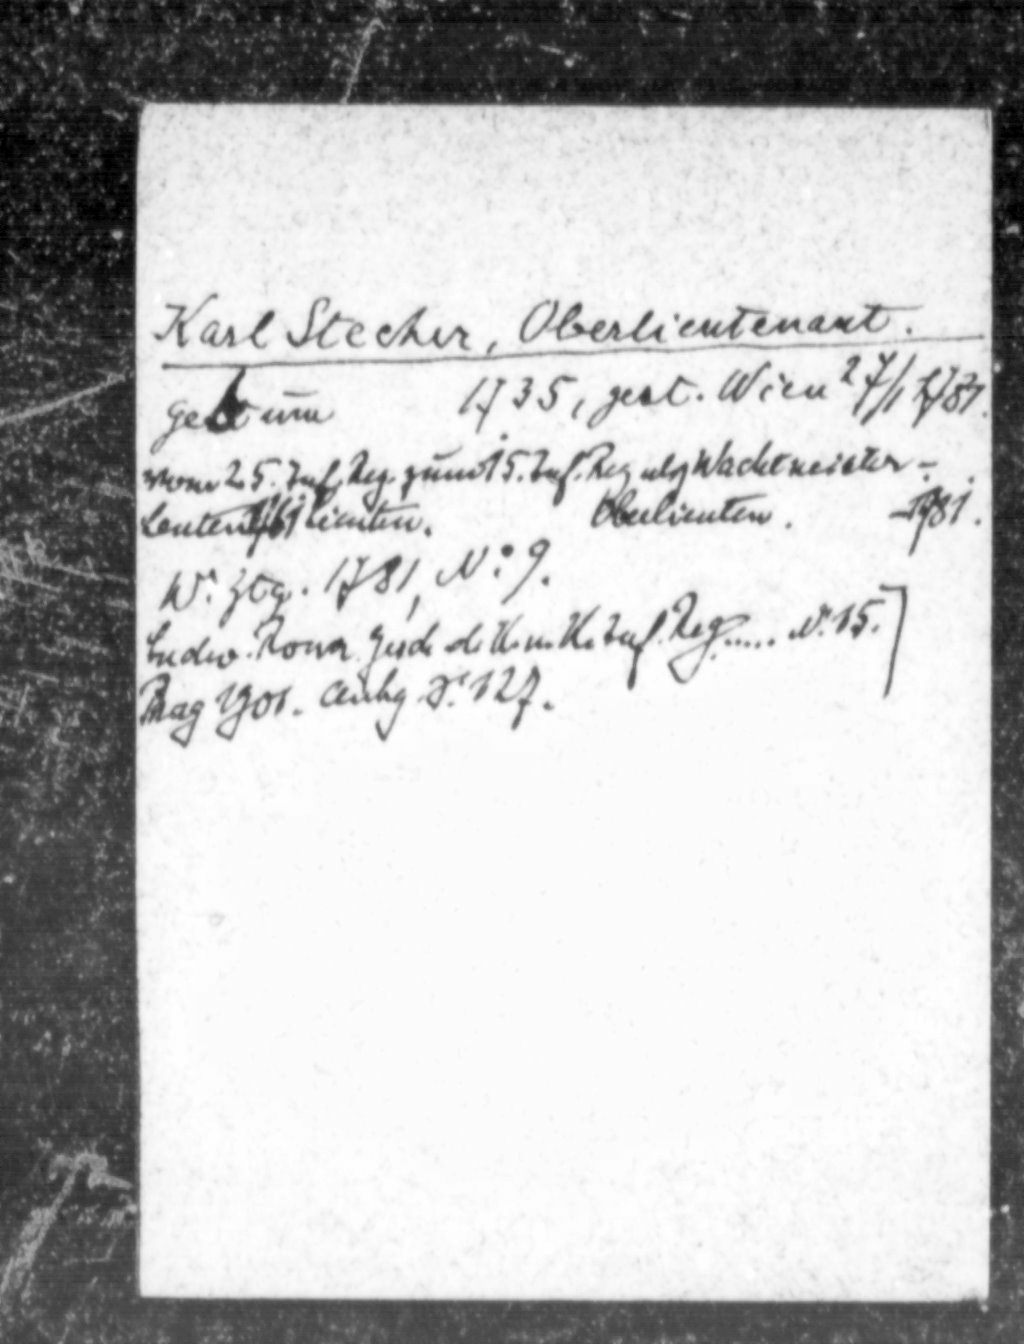 Karl Stecher, Oberlieutenant.
geb um 1735, gest. Wien 27/1 1781.
vom 25. Inf. Reg. zum 15. Inf. Reg als Wachtmeister -
Lieuten. Oberlieuten. - 1781.
W. Ztg. 1781, No. 9.
Gesch. d. K. u. K. Inf. Reg..... N. 15.]
Prag 1901. Anhg S. 127.